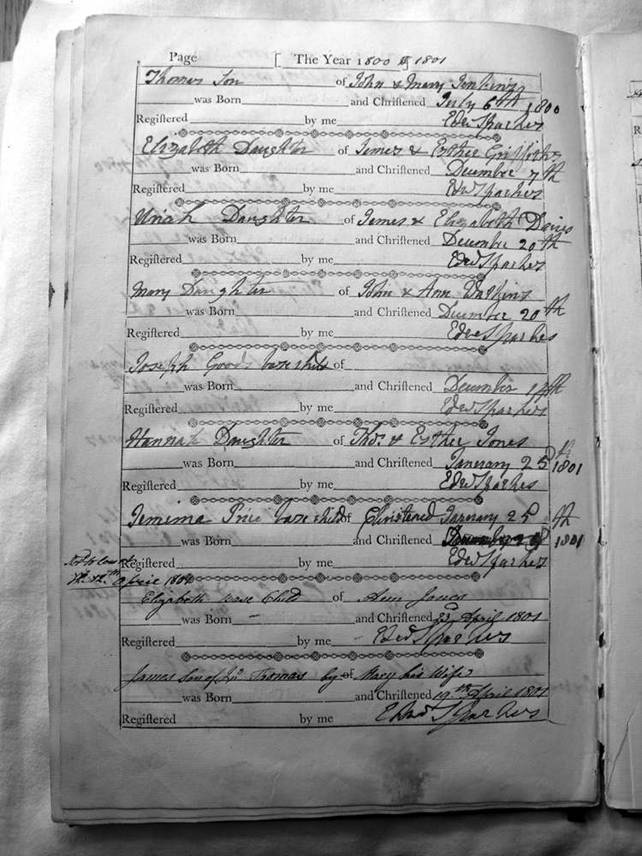 Page [ The Year 1800 & 1801
Thomas Son of John & Mary Jenkins
was Born and Chriſtened July 6th 1800
Regiſtered by me Edwd Sparkes
Elizabeth Daughter of James & Esther Griffiths
was Born and Chriſtened December 7th
Regiſtered by me Edwd Sparkes
Uriah Daughter of James & Elizabeth Davies
was Born and Chriſtened December 20th
Regiſtered by me Edwd Sparkes
Mary Daughter of John & Ann
was Born and Chriſtened December 20th
Regiſtered by me Edwd Sparkes
Joseph Good base child of
was Born and Chriſtened December
Regiſtered by me Edwd Sparkes
Hannah Daughter of Thos. & Esther Jones
was Born and Chriſtened January 25th 1801
Regiſtered by me Edwd Sparkes
Jemima Price base child of Christened January 25th
was Born and Chriſtened 1801
Regiſtered by me Edwd Sparkes
April 1801
Elizabeth base Child of Ann Jones
was Born and Chriſtened April 1801
Regiſtered by me Edwd Sparkes
James Son of Jno Thomas by of Mary his Wife
was Born and Chriſtened 19th April 1801
Regiſtered by me Edwd Sparkes